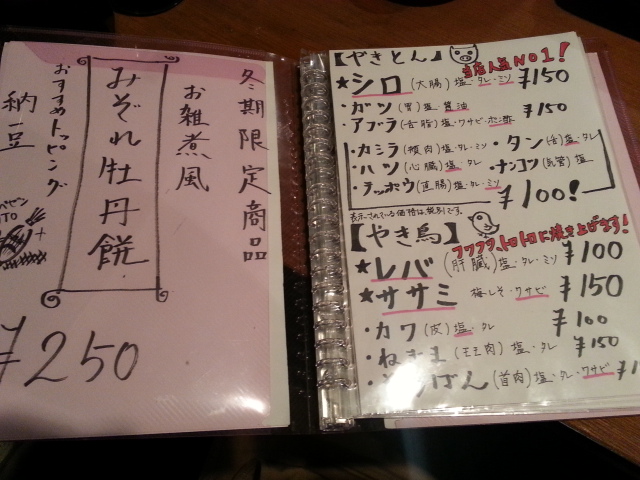 冬期限定商品
お雑煮風
みぞれ牡丹餅
おすすめトッピング
納豆
¥250
【やきとん】
当店人気NO1!
★シロ(大腸)塩・タレ・ミソ ¥150
・ガツ(胃)塩・醤油 ¥150
・アブラ 塩・ワサビ・ポン酢
・カシラ(頬肉)塩・タレ・ミソ ・タン(舌)塩・タレ
・ハツ(心臓)塩・タレ ・ナンコツ(気管)塩
・テッポウ(直腸)塩・タレ・ミソ ¥100!
表示されている価格は税別です。
【やき鳥】
フワフワ、トロトロに焼き上げます!
★レバ(肝臓)塩・タレ・ミソ ¥100
★ササミ 梅しそ・ワサビ ¥150
・カワ(皮)塩・タレ ¥100
・ねぎま(モモ肉)塩・タレ ¥150
(首肉)塩・タレ・ワサビ ¥1